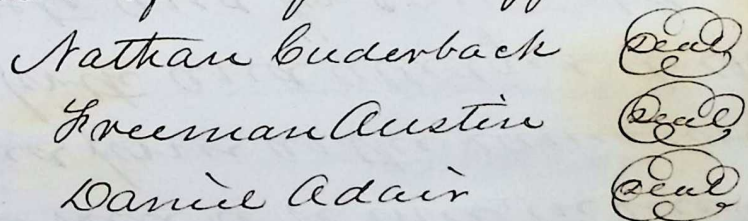 Nathan Cuderback Seal
Freeman Austin Seal
Daniel Adair Seal